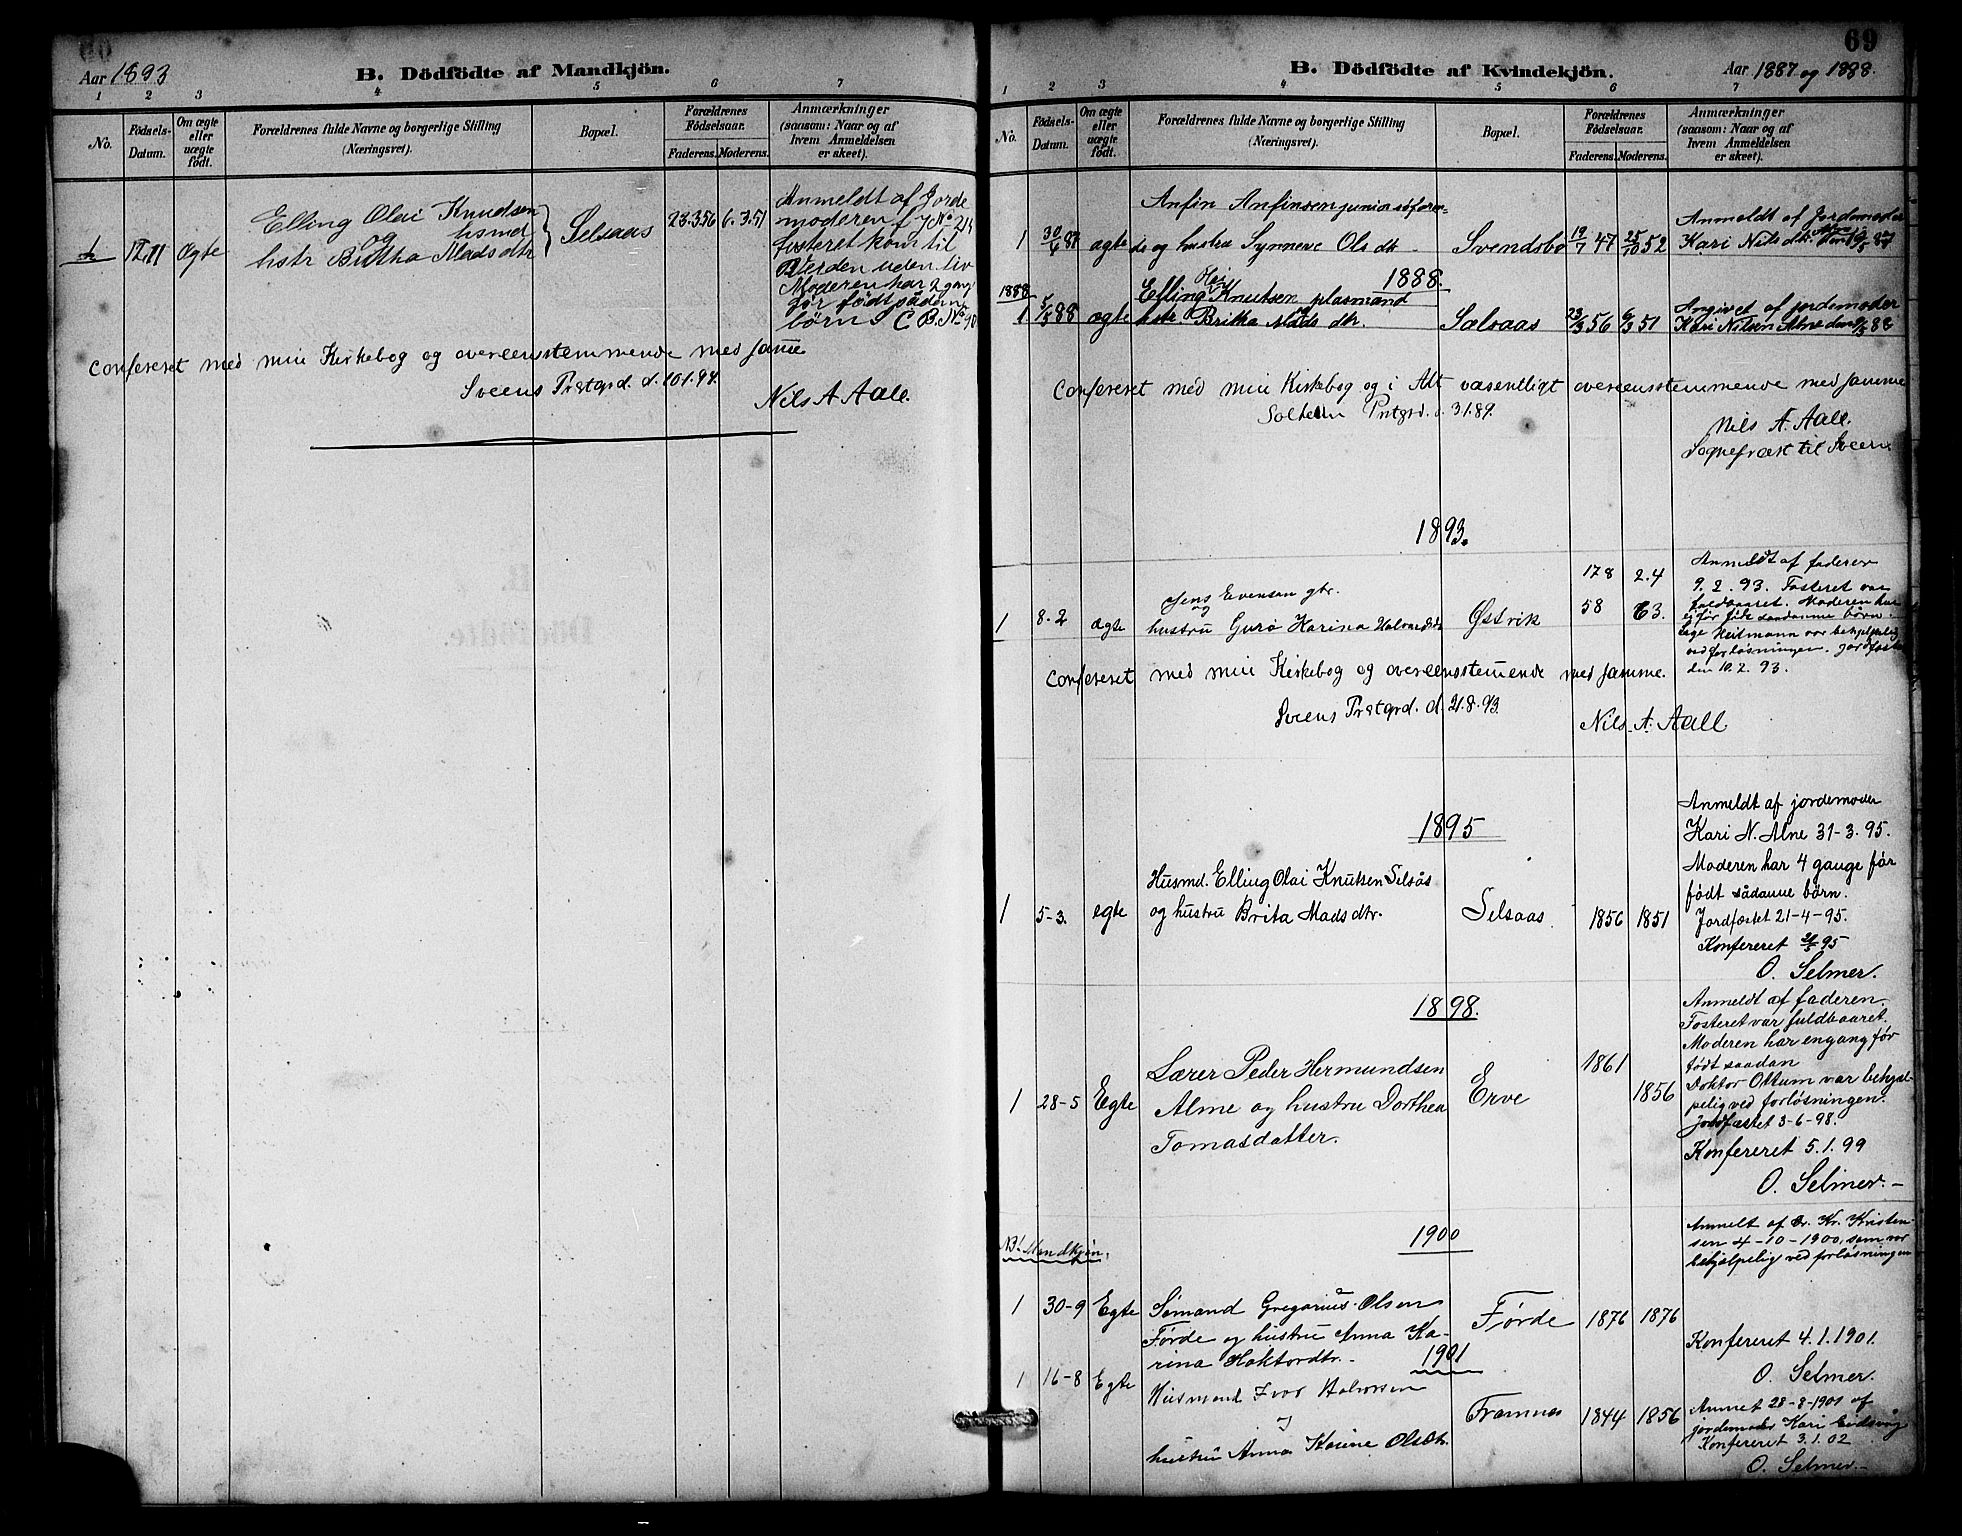 Aar 1893
B. Dödfödte af Mandkjön.
1 2 3 4 5 6 7
No.
Födsels-Datum.
Om ægte eller uægte födt.
Forældrenes fulde Navne og borgerlige Stilling
(Næringsvei).
Bopæl.
Forældrenes Födselsaar.
Faderens. Moderens.
Anmærkninger
(saasom: Naar og af
hvem Anmeldelsen
er skeet).
Elling Olai Knudsen
og husmd
hstr Britha Madsdtr
Ægte
Selsaas
23.3.56 6.3.51
Anmeldt af Jorde
moderen
fosteret kom til
Verden uden liv
Moderen har 2 gang
før født sådanne
børn
Confereret med min Kirkebog og overeensstemmende med samme
Sveens Prstgrd. d. 10.1.94.
Nils A Aall.
69
B. Dödfödte af Kvindekjön.
Aar 1887 og 1888.
1 2 3 4 5 6 7
No.
Födsels-Datum.
Om ægte eller uægte födt.
Forældrenes fulde Navne og borgerlige Stilling
(Næringsvei).
Bopæl.
Forældrenes Födselsaar.
Faderens. Moderens.
Anmærkninger
(saasom: Naar og af
hvem Anmeldelsen
er skeet).
Anfin Anfinsen
1 87 ægte de og hustru Synneve Ols dt. Svendsbø 19/7 47 25/10 52
Anmeldt af Jordemoder
Kari Nils dtr.
1888.
1888
Elling Olai Knutsen plasmand
1. 5/5 88 ægte hstr. Britha Mads dtr. Sælsaas 23/3 56 6/3 51
Angivet af jordemoder
Kari Nilsen Alne
Confereret med min Kirkebog og i Alt væsentligt overeensstemmende med samme
Prstgrd. d. 3.1.89.
Nils A. Aall.
Sognepræst til Sveen
1893.
Jens Evensen gbr.
og
1 8-2 ægte hustru Guro Karina Østvik
17 8 58
2.4 63.
Anmeldt af faderen
9.2.93. Fosteret var
fuldbaaret. Moderen har
ei før født saadanne børn
Læge Heitmann var behjelpelig
ved forløsningen. Jordfæstet
den 10.2.93.
Confereret med min Kirkebog og overeensstemende med samme.
Sveens Prstgrd. d. 21.8.93.
Nils. A. Aall
1895
Husmd. Elling Olai Knutsen Selsås
1 5-3. egte og hustru Brita Mads dtr. Selsaas 1856 1851
Anmeldt af jordemoder
Kari N. Alne 31-3.95.
Moderen har 4 gange før
født sådanne børn.
Jordfæstet 21-4-95.
Konfereret 95
O. Selmer.
1898.
Lærer Peder Hermundsen
1 28-5 Egte Alme og hustru Dorthea Erve 1861 1856
Tomasdatter.
Anmeldt af faderen.
Fosteret var fuldbaaret.
Moderen har engang før
født saadan
Doktor Ottum var behjæl-
pelig ved forløsningen.
Jordfæstet 3-6-98.
Konfereret 5.1.99
O. Selmer.-
1900
Mandkjøn.
1 30-9 Egte Sømand Gregorius Olsen Førde 1876 1876
Førde og hustru Anna Ka-
rina Haktordtr.-
Anmelt af Dr. Kr. Kristen-
sen 4-10-1900, som var
behjælpelig ved forløsningen
Konfereret 4.1.1901.
O. Selmer.
1901
1 16-8 Egte Husmand Ivar Halvorsen
og
hustru Anna Karine Olsdt.
Framnes 1844 1856
Anmet 28-8-1901 af
jordemoder Kari Eidsvåg
Konfereret 3.1.02
O. Selmer.-